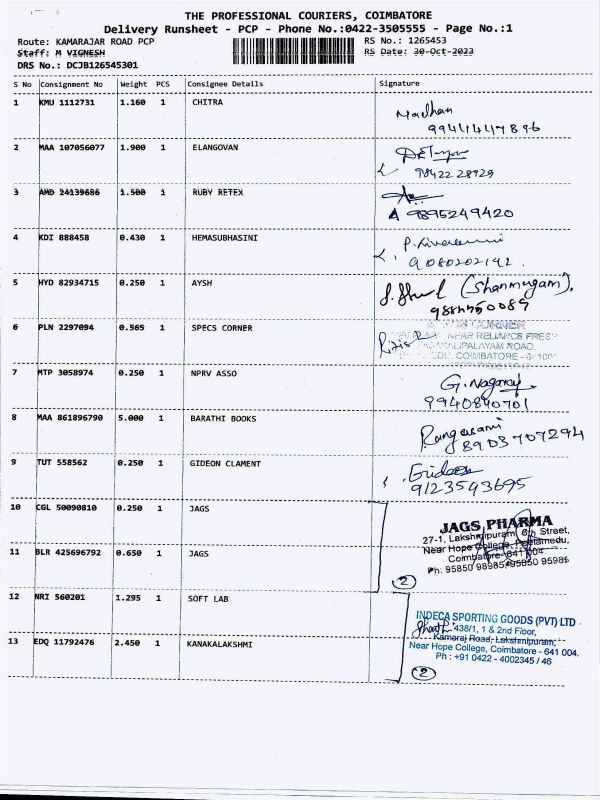 THE PROFESSIONAL COURIERS, COIMBATORE
Delivery Runsheet - PCP - Phone No.:0422-3505555 - Page No.:1
Route: KAMARAJAR ROAD PCP RS No.: 1265453
Staff: M VIGNESH RS Date: 30-Oct-2023
DRS No.: DCJB126545301
S No Consignment No Weight PCS Consignee Details Signature
1 KMU 1112731 1.160 1 CHITRA
Madhan
9944147896
2 MAA 107056077 1.900 1 ELANGOVAN
98422 28929
3 AMD 24139686 1.500 1 RUBY RETEX
9895249420
4 KDI 888458 0.430 1 HEMASUBHASINI
9080202142.
5 HYD 82934715 0.250 1 AYSH
(Shanmugam).
6 PLN 2297094 0.565 1 SPECS CORNER
CORNER
NEAR RELIANCE FRESH
PALAYAM ROAD.
COIMBATORE -
7 MTP 3058974 0.250 1 NPRV ASSO
G. Nagaraj
9940840701
8 MAA 861896790 5.000 1 BARATHI BOOKS
Rangasami
8903707294
9 TUT 558562 0.250 1 GIDEON CLAMENT
9123593695
10 CGL 50090810 0.250 1 JAGS
JAGS PHARMA
27-1, Lakshmipuram, 6th Street,
Near Hope College, Peelamedu,
Coimbatore- 641 004.
Ph: 95850 98985, 95850 95985
11 BLR 425696792 0.650 1 JAGS
2
12 NRI 560201 1.295 1 SOFT LAB
INDECA SPORTING GOODS (PVT) LTD
438/1, 1 & 2nd Floor,
Kamaraj Road, Lakshmipuram,
Near Hope College, Coimbatore - 641 004.
Ph : +91 0422 - 4002345 / 46
13 EDQ 11792476 2.450 1 KANAKALAKSHMI
2